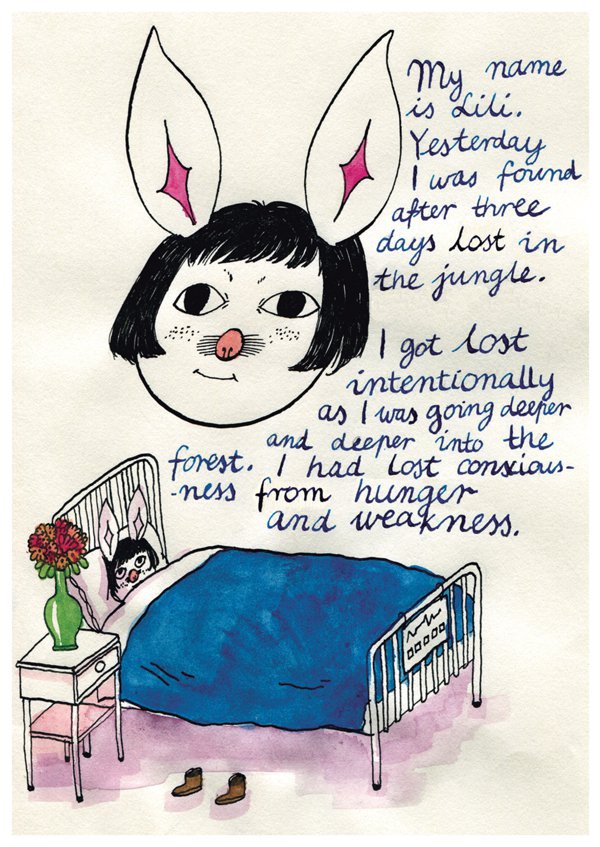 My name
is Lili.
Yesterday
I was found
after three
days lost in
the jungle.
I got lost
intentionally
as I was going deeper
and deeper into the
forest. I had lost consxious-
-ness from hunger
and weakness.